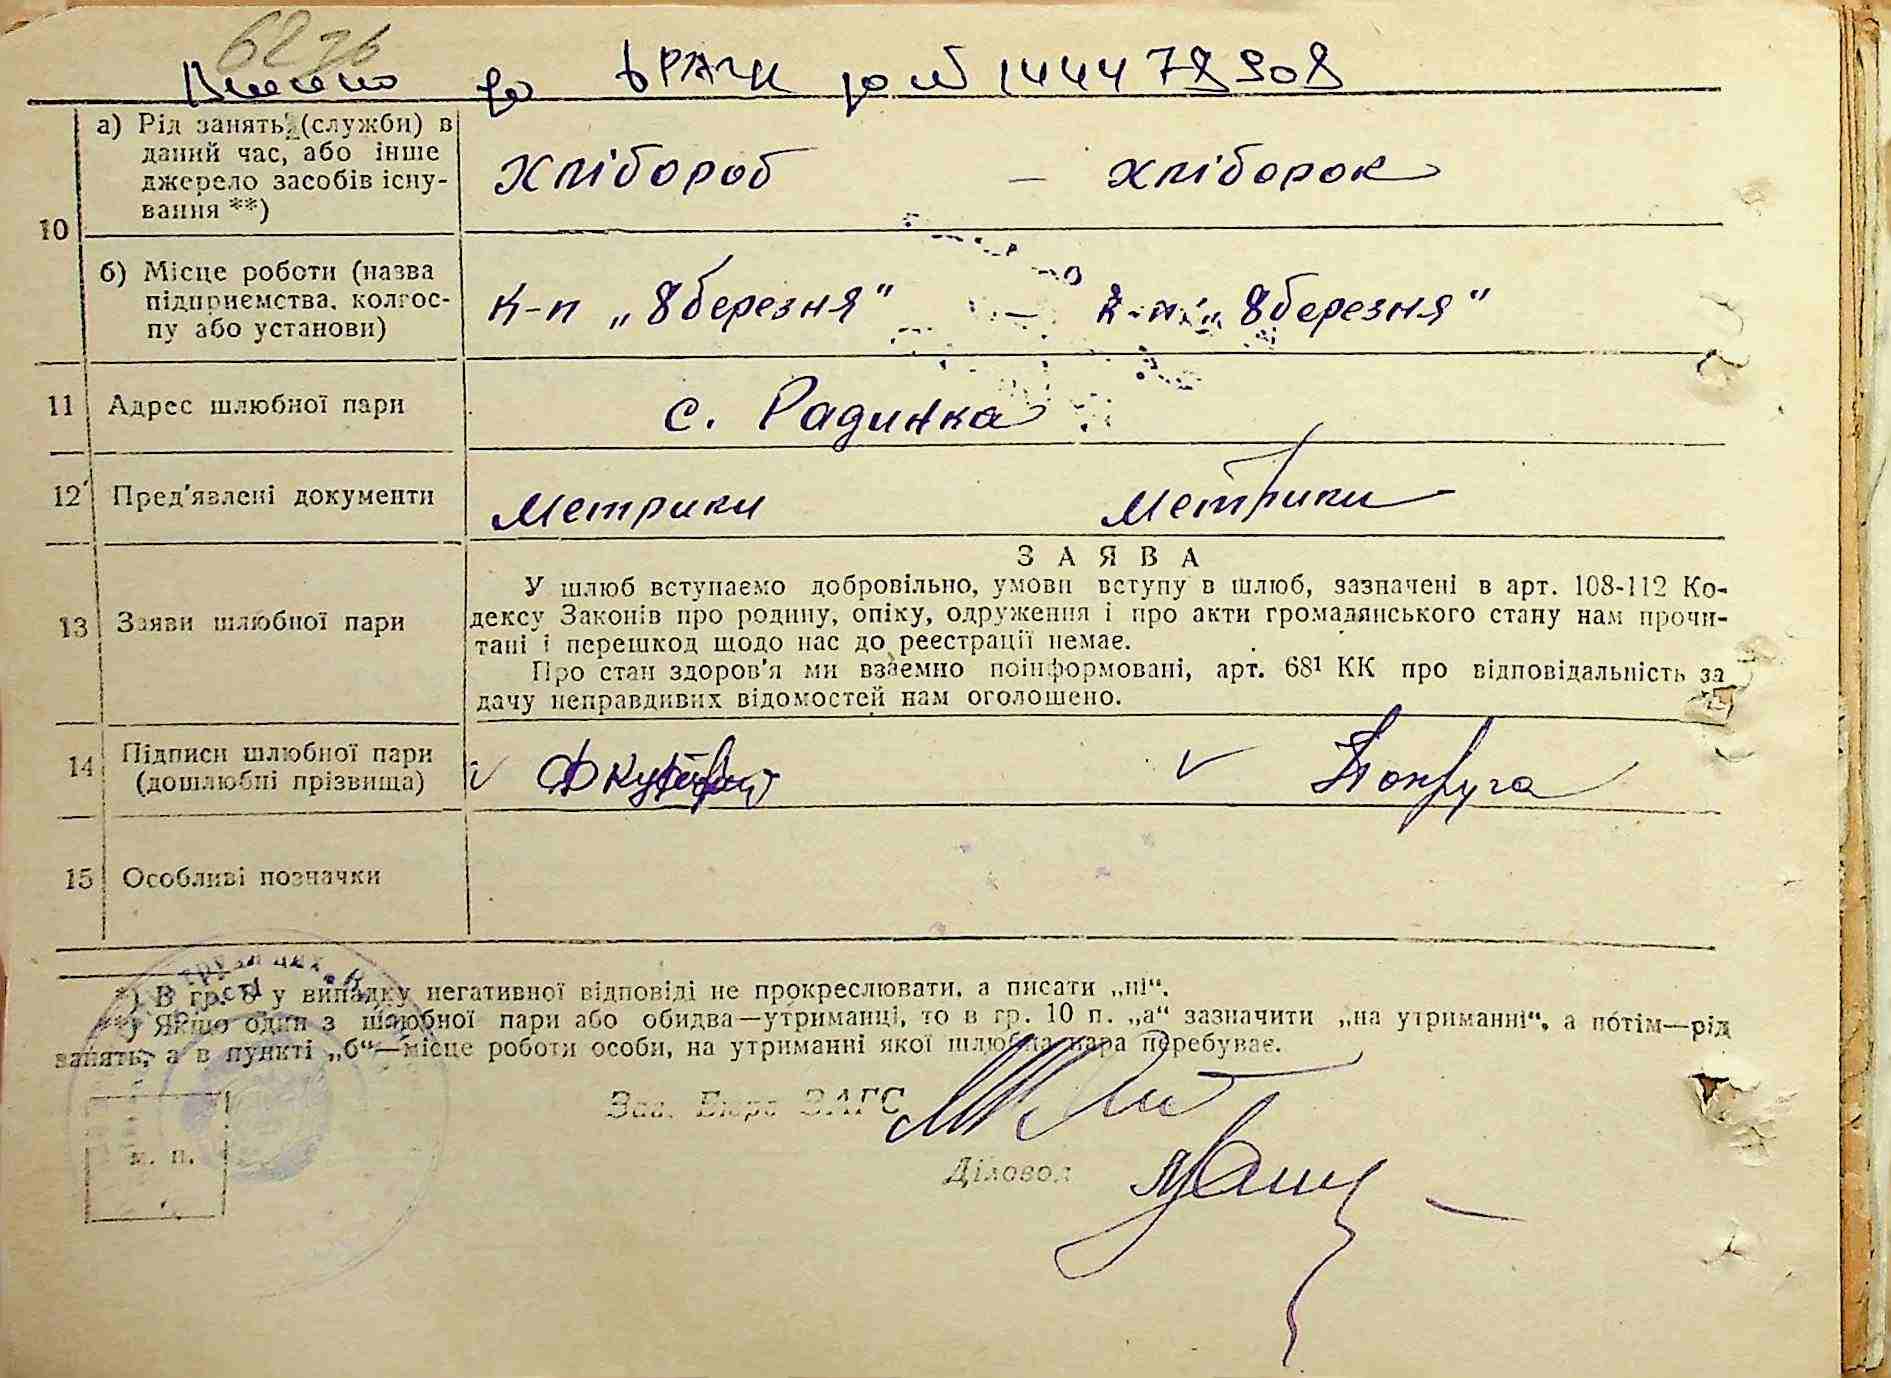 62 зв
Внесено до ДРАЦС за № 1444 78 908
10
а) Рід занять (служби) в
даний час, або інше
джерело засобів існу-
вання **)
Хлібороб — хліборок
б) Місце роботи (назва
підприємства, колгос-
пу або установи)
К-п „8 березня" — к-п „8 березня"
11 Адрес шлюбної пари
с. Радинка
12 Пред'явлені документи
Метрики Метрики
13 Заяви шлюбної пари
ЗАЯВА
У шлюб вступаємо добровільно, умови вступу в шлюб, зазначені в арт. 108-112 Ко-
дексу Законів про родину, опіку, одруження і про акти громадянського стану нам прочи-
тані і перешкод щодо нас до реєстрації немає.
Про стан здоров'я ми взаємно поінформовані, арт. 68¹ КК про відповідальність за
дачу неправдивих відомостей нам оголошено.
14 Підписи шлюбної пари
(дошлюбні прізвища)
Попруга
15 Особливі позначки
*) В гр. 8 у випадку негативної відповіді не прокреслювати, а писати „ні“.
**) Якщо один з шлюбної пари або обидва—утриманці, то в гр. 10 п. „а“ зазначити „на утриманні“, а потім—рід
занять, а в пункті „б“—місце роботи особи, на утриманні якої шлюбна пара перебуває.
Зав. Бюро ЗАГС
Діловод
м. п.